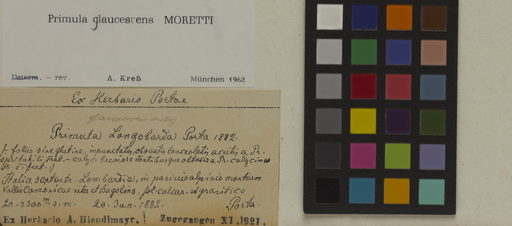 Primula glaucescens MORETTI
Determ. - rev. A. Kreß München 1962
Ex Herbario Portae
glaucescens
Primula Longobarda Porta 1882.
foliis sine glutine, impunctatis, obovatis lanceolatis acutis a Pr.
spectabili calyc breviore a Pr. calycina
Italia septentr. Lombardia, in pascuis alpinis montium
Vallis Camonicae sol. calcar. et granitico
20-2300 m s. m. 20. Jun. 1882. Porta.
Ex Herbario A. Hiendlmayr. Zugegangen XI.1921.